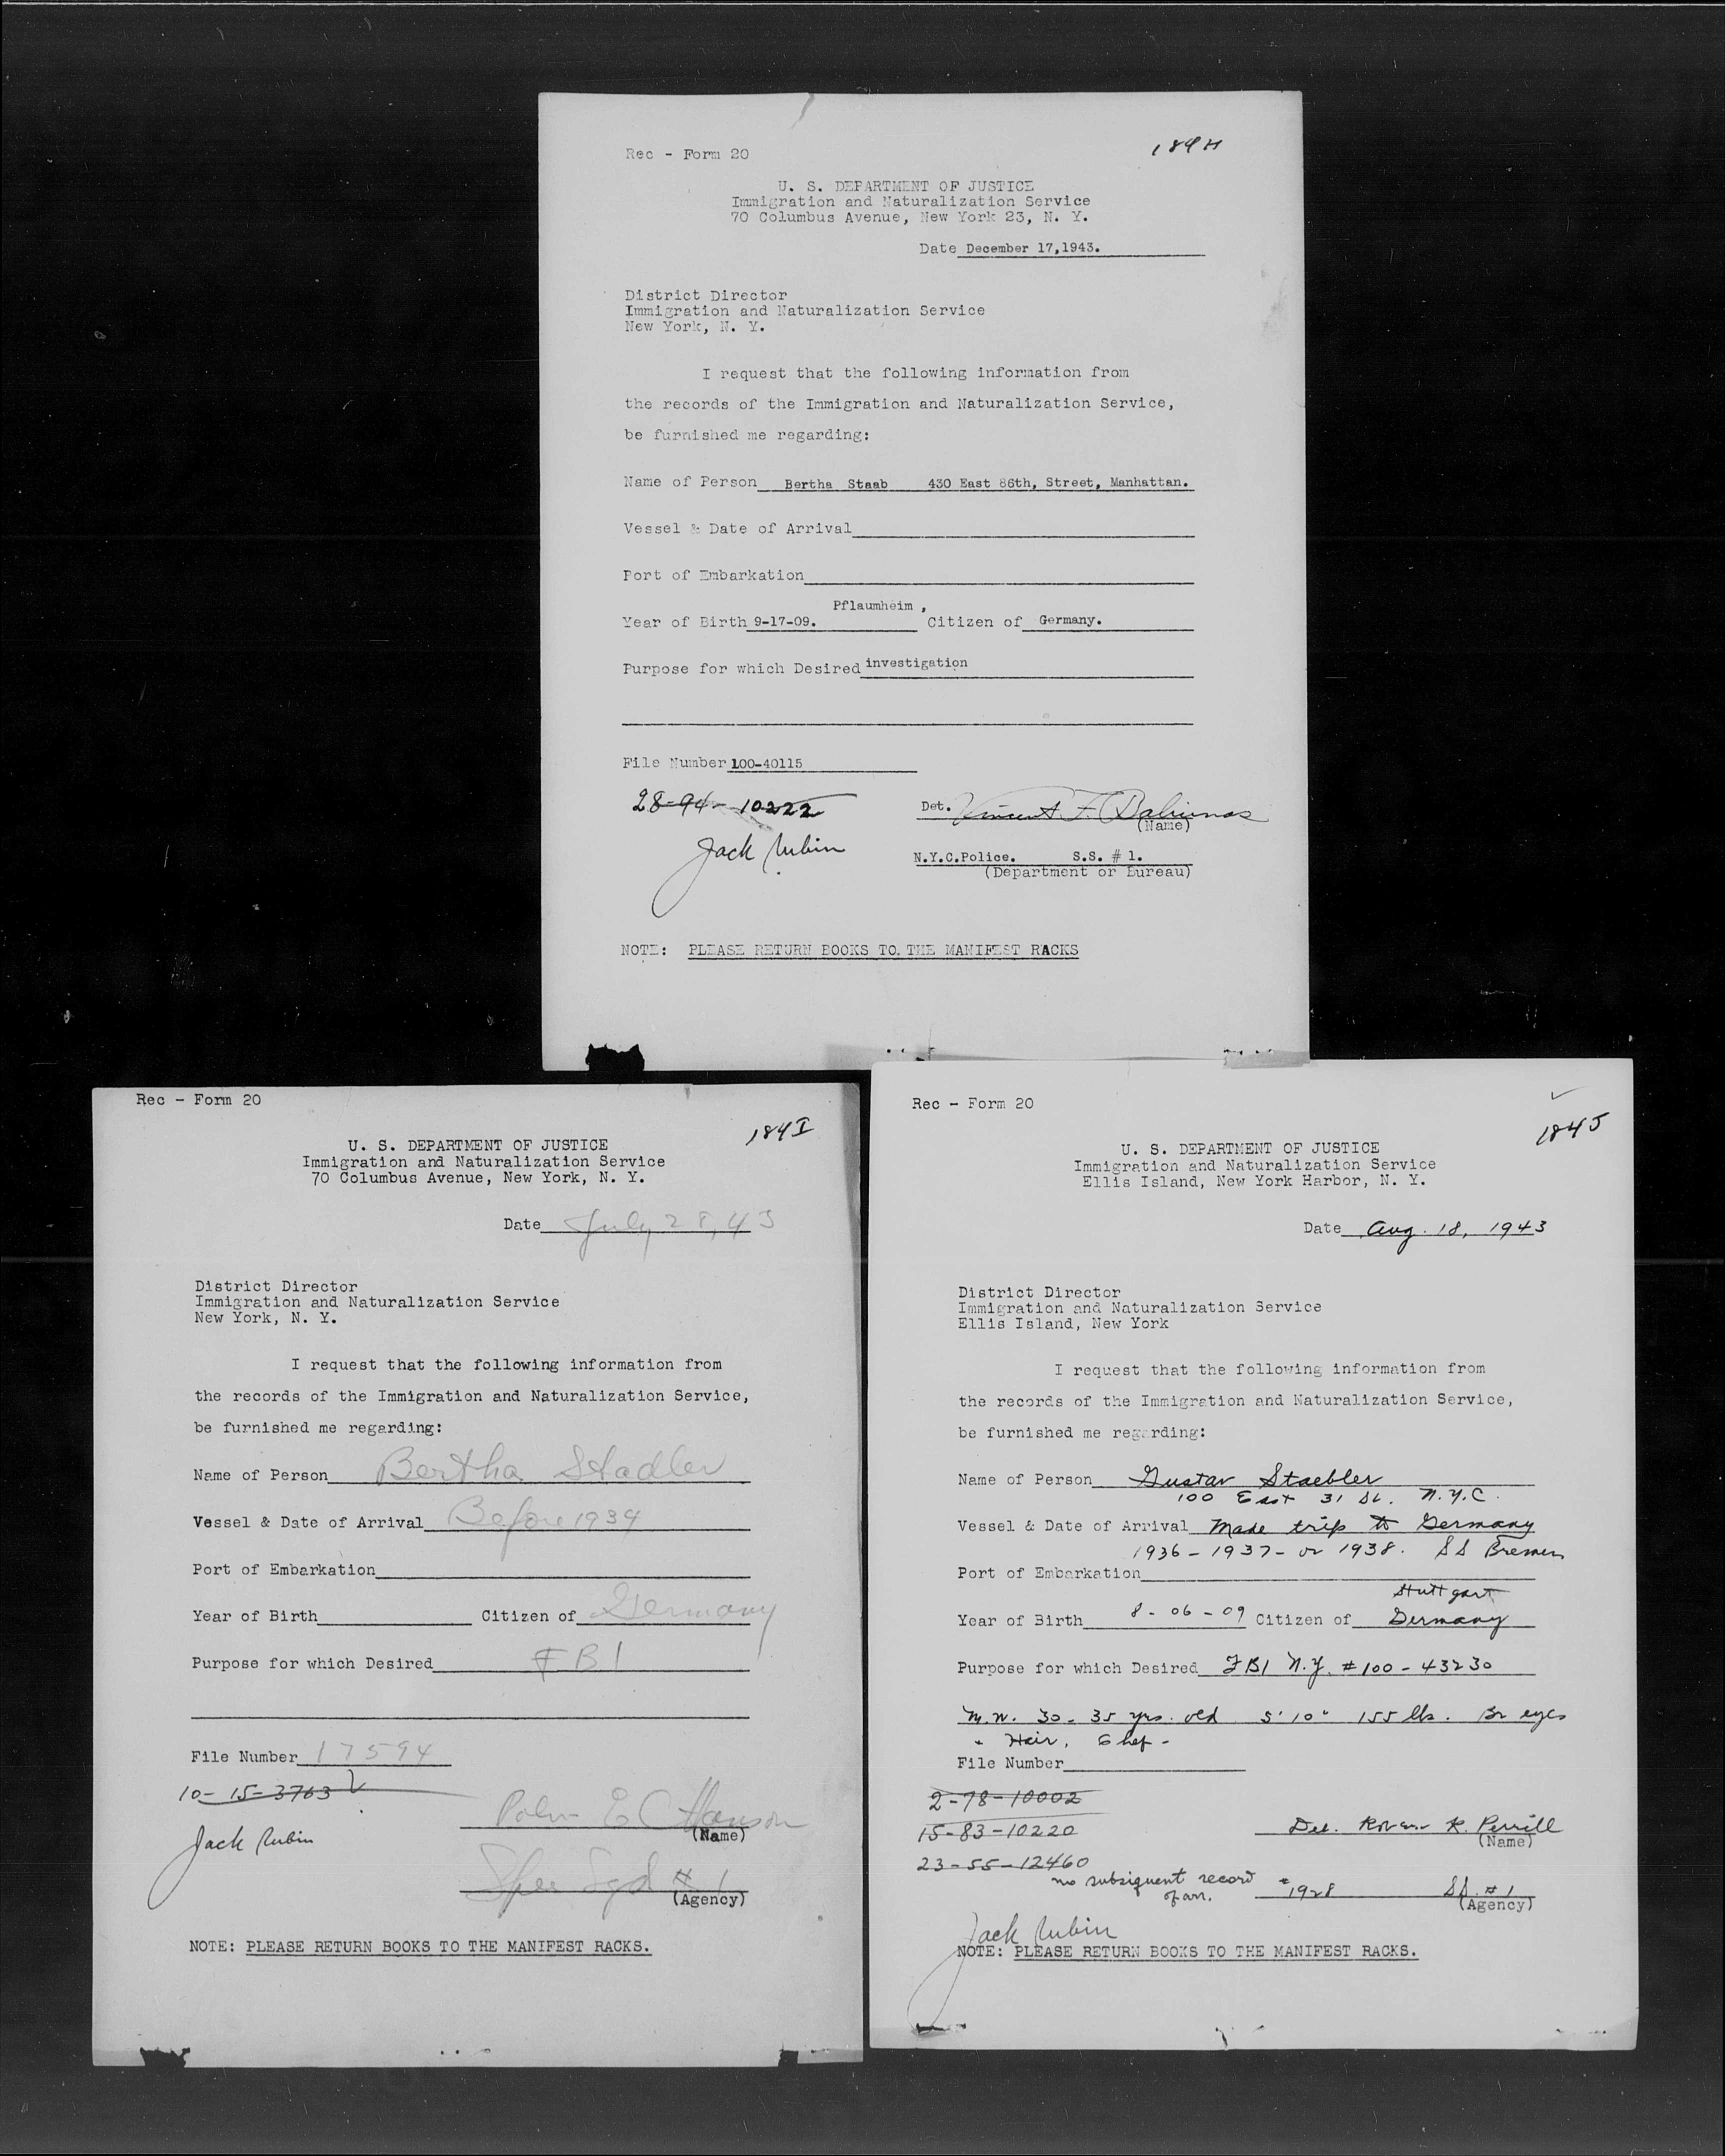 Rec - Form 20
184H
U. S. DEPARTMENT OF JUSTICE
Immigration and Naturalization Service
70 Columbus Avenue, New York 23, N. Y.
Date December 17,1943.
District Director
Immigration and Naturalization Service
New York, N. Y.
I request that the following information from
the records of the Immigration and Naturalization Service,
be furnished me regarding:
Name of Person Bertha Staab 430 East 86th, Street, Manhattan.
Vessel & Date of Arrival
Port of Embarkation
Pflaumheim ,
Year of Birth 9-17-09. Citizen of Germany.
Purpose for which Desired investigation
File Number 100-40115
28-94-10222
Det. Vincent F.
(Name)
Jack Rubin
N.Y.C.Police. S.S. # 1.
(Department or Bureau)
NOTE: PLEASE RETURN BOOKS TO THE MANIFEST RACKS
Rec - Form 20
184I
U. S. DEPARTMENT OF JUSTICE
Immigration and Naturalization Service
70 Columbus Avenue, New York, N. Y.
Date July 28, 43
District Director
Immigration and Naturalization Service
New York, N. Y.
I request that the following information from
the records of the Immigration and Naturalization Service,
be furnished me regarding:
Name of Person Bertha Stadler
Vessel & Date of Arrival Before 1939
Port of Embarkation
Year of Birth Citizen of Germany
Purpose for which Desired FBI
File Number 17594
10-15-3763
Hanson
(Name)
Jack Rubin
Sqd # 1
(Agency)
NOTE: PLEASE RETURN BOOKS TO THE MANIFEST RACKS.
Rec - Form 20
184J
U. S. DEPARTMENT OF JUSTICE
Immigration and Naturalization Service
Ellis Island, New York Harbor, N. Y.
Date Aug. 18, 1943
District Director
Immigration and Naturalization Service
Ellis Island, New York
I request that the following information from
the records of the Immigration and Naturalization Service,
be furnished me regarding:
Name of Person Gustav Staebler
100 East 31 St. N.Y.C.
Vessel & Date of Arrival Made trip to Germany
1936-1937- or 1938. SS Bremen
Port of Embarkation
Stuttgart
Year of Birth 8-06-09 Citizen of Germany
Purpose for which Desired FBI N.Y. #100-43230
M.W. 30-35 yrs. old 5'10" 155 lbs. Br eyes
" Hair, Chef-
File Number
2-78-10002
15-83-10220
Det. K.
(Name)
23-55-12460
no subsiquent record
of arr. 1928 SS. #1
(Agency)
Jack Rubin
NOTE: PLEASE RETURN BOOKS TO THE MANIFEST RACKS.